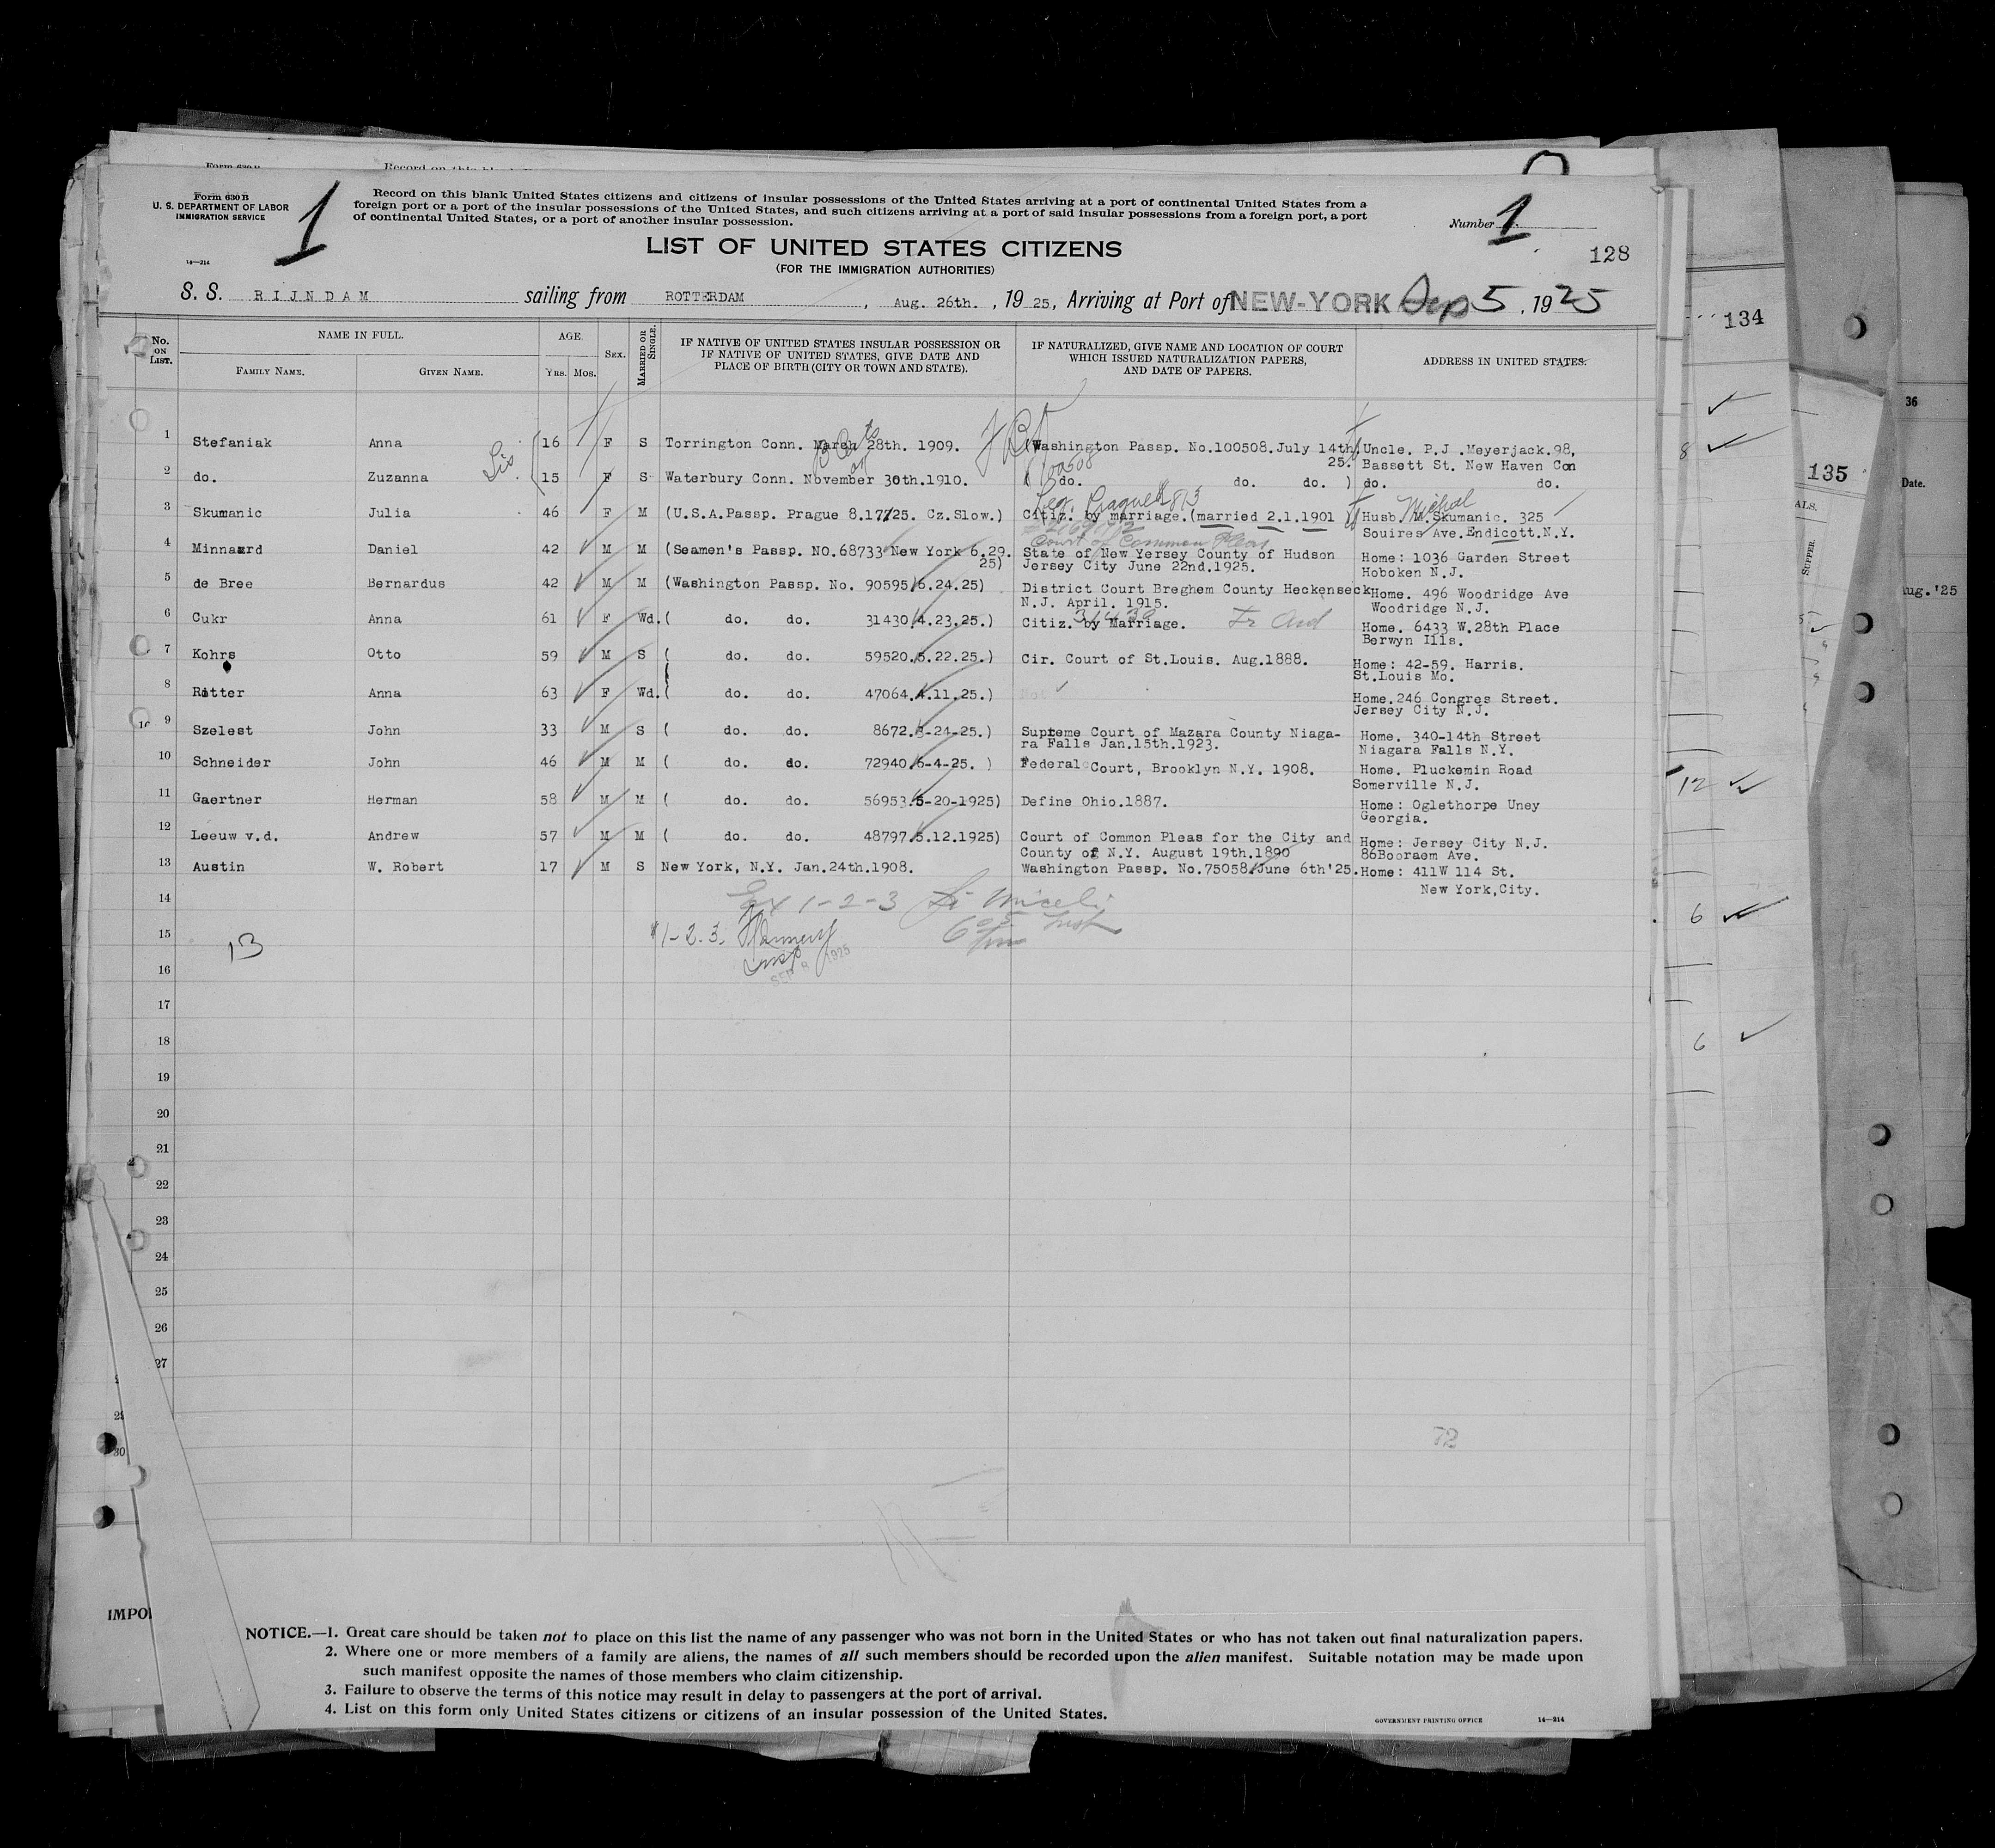 Form 630 B
U. S. DEPARTMENT OF LABOR
IMMIGRATION SERVICE
14—214
1
Record on this blank United States citizens and citizens of insular possessions of the United States arriving at a port of continental United States from a
foreign port or a port of the insular possessions of the United States, and such citizens arriving at a port of said insular possessions from a foreign port, a port
of continental United States, or a port of another insular possession.
Number 1
128
LIST OF UNITED STATES CITIZENS
(FOR THE IMMIGRATION AUTHORITIES)
S. S. RIJNDAM sailing from ROTTERDAM, Aug. 26th., 1925, Arriving at Port of NEW-YORK Sep 5, 1925
No. ON LIST.
NAME IN FULL.
FAMILY NAME. GIVEN NAME.
AGE
YRS. MOS.
SEX.
MARRIED OR SINGLE.
IF NATIVE OF UNITED STATES INSULAR POSSESSION OR
IF NATIVE OF UNITED STATES, GIVE DATE AND
PLACE OF BIRTH (CITY OR TOWN AND STATE).
IF NATURALIZED, GIVE NAME AND LOCATION OF COURT
WHICH ISSUED NATURALIZATION PAPERS,
AND DATE OF PAPERS.
ADDRESS IN UNITED STATES.
1 Stefaniak Anna 16 F S Torrington Conn. March 28th. 1909. (Washington Passp. No.100508.July 14th, Uncle. P.J .Meyerjack.98,
25. Bassett St. New Haven Con
Sis
2 do. Zuzanna 15 F S Waterbury Conn. November 30th.1910. ( do. do. do. ) do. do.
100508
3 Skumanic Julia 46 F M (U.S.A.Passp. Prague 8.17/25. Cz.Slow.) Citiz. by marriage.(married 2.1.1901 Husb. M.Skumanic. 325
Michal
Souires Ave.Endicott.N.Y.
Court of Common Pleas
4 Minnaard Daniel 42 M M (Seamen's Passp. NO.68733 New York 6.29. State of New Yersey County of Hudson Home: 1036 Garden Street
25) Jersey City June 22nd.1925. Hoboken N.J.
5 de Bree Bernardus 42 M M (Washington Passp. No. 90595/6.24.25) District Court Breghem County Heckenseck Home. 496 Woodridge Ave
N.J. April. 1915. Woodridge N.J.
6 Cukr Anna 61 F Wd. ( do. do. 31430/4.23.25.) Citiz. by Marriage. Home. 6433 W.28th Place
Berwyn Ills.
7 Kohrs Otto 59 M S ( do. do. 59520.5.22.25.) Cir. Court of St.Louis. Aug.1888. Home: 42-59. Harris.
St.Louis Mo.
8 Ritter Anna 63 F Wd. ( do. do. 47064.4.11.25.) Home.246 Congres Street.
Jersey City N.J.
9 Szelest John 33 M S ( do. do. 8672.3-24-25.) Supreme Court of Mazara County Niaga- Home. 340-14th Street
ra Falls Jan.15th.1923. Niagara Falls N.Y.
10 Schneider John 46 M M ( do. do. 72940/6-4-25. ) Federal Court, Brooklyn N.Y. 1908. Home. Pluckemin Road
Somerville N.J.
11 Gaertner Herman 58 M M ( do. do. 56953.5-20-1925) Define Ohio.1887. Home: Oglethorpe Uney
Georgia.
12 Leeuw v.d. Andrew 57 M M ( do. do. 48797.5.12.1925) Court of Common Pleas for the City and Home: Jersey City N.J.
County of N.Y. August 19th.1890 86Booraem Ave.
13 Austin W. Robert 17 M S New York, N.Y. Jan.24th.1908. Washington Passp. No.75058/June 6th'25. Home: 411W 114 St.
New York,City.
14
15
1-2-3
1-2.3.
Insp
SEP 8 1925
13
16
17
18
19
20
21
22
23
24
25
26
27
30
72
IMPO
NOTICE.—1. Great care should be taken not to place on this list the name of any passenger who was not born in the United States or who has not taken out final naturalization papers.
2. Where one or more members of a family are aliens, the names of all such members should be recorded upon the alien manifest. Suitable notation may be made upon
such manifest opposite the names of those members who claim citizenship.
3. Failure to observe the terms of this notice may result in delay to passengers at the port of arrival.
4. List on this form only United States citizens or citizens of an insular possession of the United States.
GOVERNMENT PRINTING OFFICE 14—214
134
8
12
6
6
135
ALS.
SUPPER.
36
Date.
Aug.'25